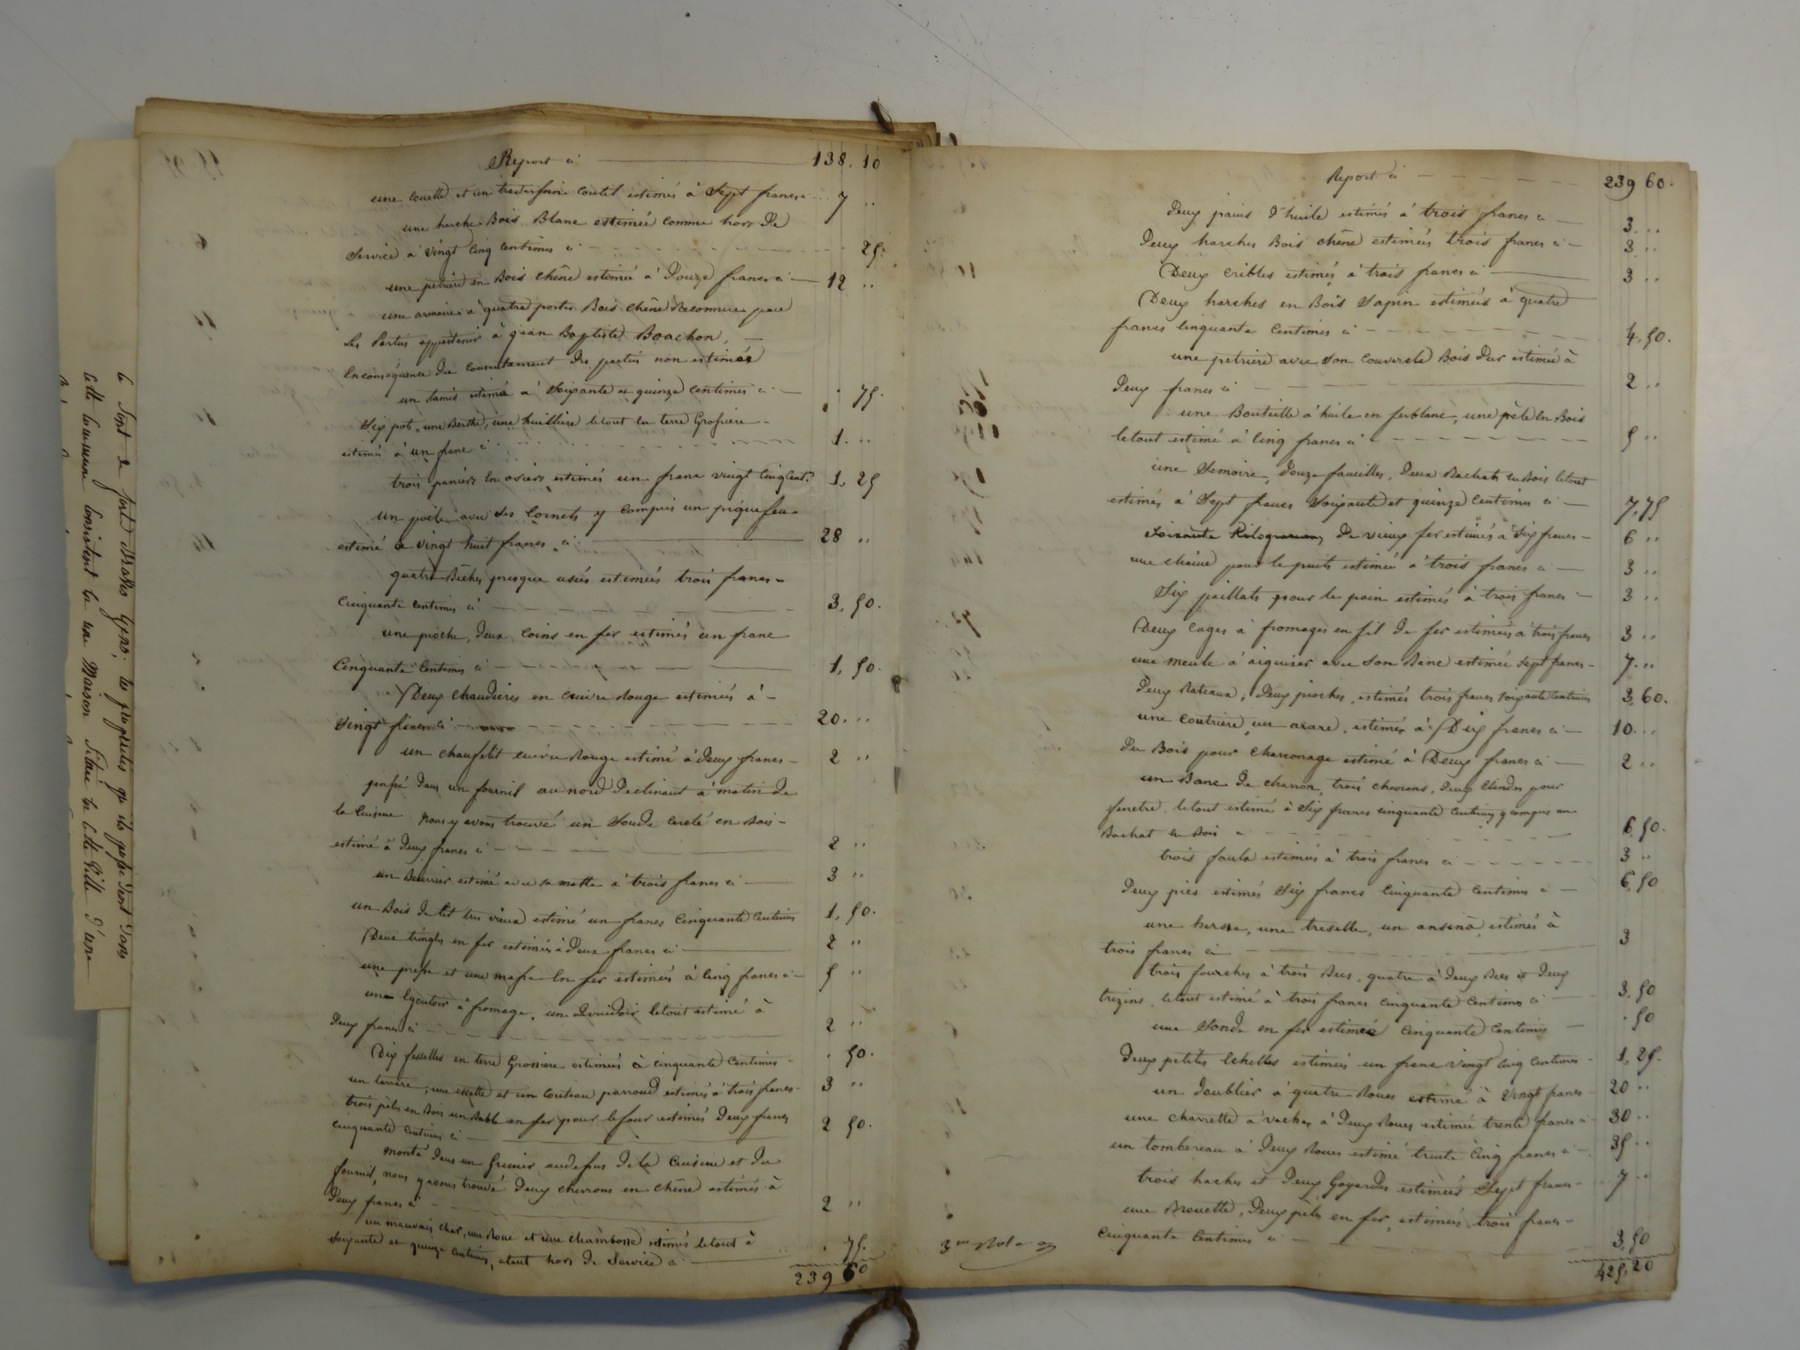 Report ci 138. 10
une couette et un traversin coutil estimés à Sept francs 7 ..
une harche Bois Blanc estimée comme hors de
Service à vingt cinq centimes ci 25.
une petrière en Bois chêne estimée à Douze francs ci 12 ..
une armoire à quatre portes Bois chêne Reconnue par
les Parties appartenir à Jean Baptiste Boachon,
Enconséquence du consentement des parties non estimée
un tamis estimé à Soixante et quinze centimes ci . 75.
Six pots, une Berthe, une huillière letout en terre Grossière
estimés à un franc ci 1. ..
trois paniers en osiers estimés un franc vingt cinq cent. 1, 25
un poële avec ses Cornets y compris un piquefeu
estimé à vingt huit francs ci 28 ..
quatre Bêches presque usées estimées trois francs
cinquante centimes ci 3, 50.
une pioche, deux coins en fer estimés un franc
Cinquante Centimes ci 1, 50.
Deux chaudières en cuivre Rouge estimées à
vingt francs ci 20. ..
un chaufelit cuivre Rouge estimé à deux francs 2 ..
passé dans un fournil au nord declinant à matin de
la Cuisine nous y avons trouvé un en Bois
estimé à deux francs ci 2 ..
un Beurrier estimé avec sa motte à trois francs ci 3 ..
un Bois de lit très vieux estimé un franc Cinquante Centimes 1, 50.
Deux tringles en fer estimées à Deux francs ci 2 ..
une presse et une masse en fer estimées à Cinq francs ci 5 ..
une Egoutoir à fromage, un Devidoir letout estimé à
Deux francs ci 2 ..
Dix faisselles en terre Grossière estimées à cinquante Centimes . 50.
un terrare, une et un Couteau parroud estimés à trois francs 3 ..
trois pelles en Bois un Rable en fer pour le four estimés Deux francs
cinquante Centimes ci 2 50.
monté dans un Grenier audessus de la Cuisine et du
fournil, nous y avons trouvé Deux chevrons en chêne estimés à
Deux francs ci 2 ..
un mauvais char, une Roue et une estimés letout à
Soixante et quinze Centimes, etant hors de Service ci . 75.
239 60
Report ci 239 60.
Deux pains d'huile estimés à trois francs ci 3. ..
Deux harches Bois chêne estimées trois francs ci 3 ..
Deux cribles estimés à trois francs ci 3 ..
Deux harches en Bois Sapin estimées à quatre
francs Cinquante Centimes ci 4, 50.
une petrière avec son couvercle Bois Dur estimée à
Deux francs ci 2 ..
une Bouteille à huile en ferblanc, une pêle en Bois
letout estimé à Cinq francs ci 5 ..
une Semoire, Douze faucilles, Deux Bachats en Bois letout
estimés à Sept francs Soixante et quinze Centimes ci 7, 75
Soixante Kilogrammes de vieux fer estimés à Six francs 6 ..
une chaine pour le puits estimée à trois francs ci 3 ..
Six paillats pour le pain estimés à trois francs 3 ..
Deux Cages à fromages en fil de fer estimées à trois francs 3 ..
une meule à aiguiser avec son Banc estimée Sept francs 7. ..
Deux Rateaux, Deux pioches, estimés trois francs Soixante Centimes 3, 60.
une Coutrière, un arare, estimés à Dix francs ci 10. ..
Du Bois pour Charronage estimé à Deux francs ci 2 ..
un Banc de charron, trois chevrons, Deux pour
fenetre, letout estimé à Six francs cinquante Centimes y compris un
Bachat en Bois 6, 50.
trois faulx estimées à trois francs ci 3 ..
Deux pics estimés Six francs Cinquante Centimes ci 6, 50
une herse, une treselle, un estimés à
trois francs ci 3
trois fourches à trois Becs, quatre à Deux Becs et Deux
trezins, letout estimé à trois francs Cinquante Centimes ci 3, 50
une Sonde en fer estimée Cinquante Centimes . 50
Deux petites Echelles estimées un franc vingt Cinq Centimes 1, 25.
un Doublier à quatre Roues estimé à vingt francs 20 ..
une charrette à vaches à Deux Roues estimée trente francs ci 30 ..
un tombereau à Deux Roues estimé trente Cinq francs ci 35 ..
trois haches et Deux Goyardes estimées Sept francs 7 ..
une Brouette, Deux pêles en fer, estimées trois francs
Cinquante Centimes ci 3, 50
425, 20